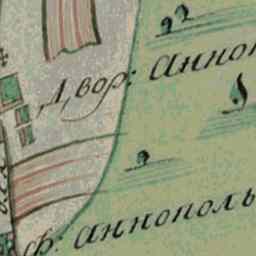 Двор: Анноп
ф: Аннополь